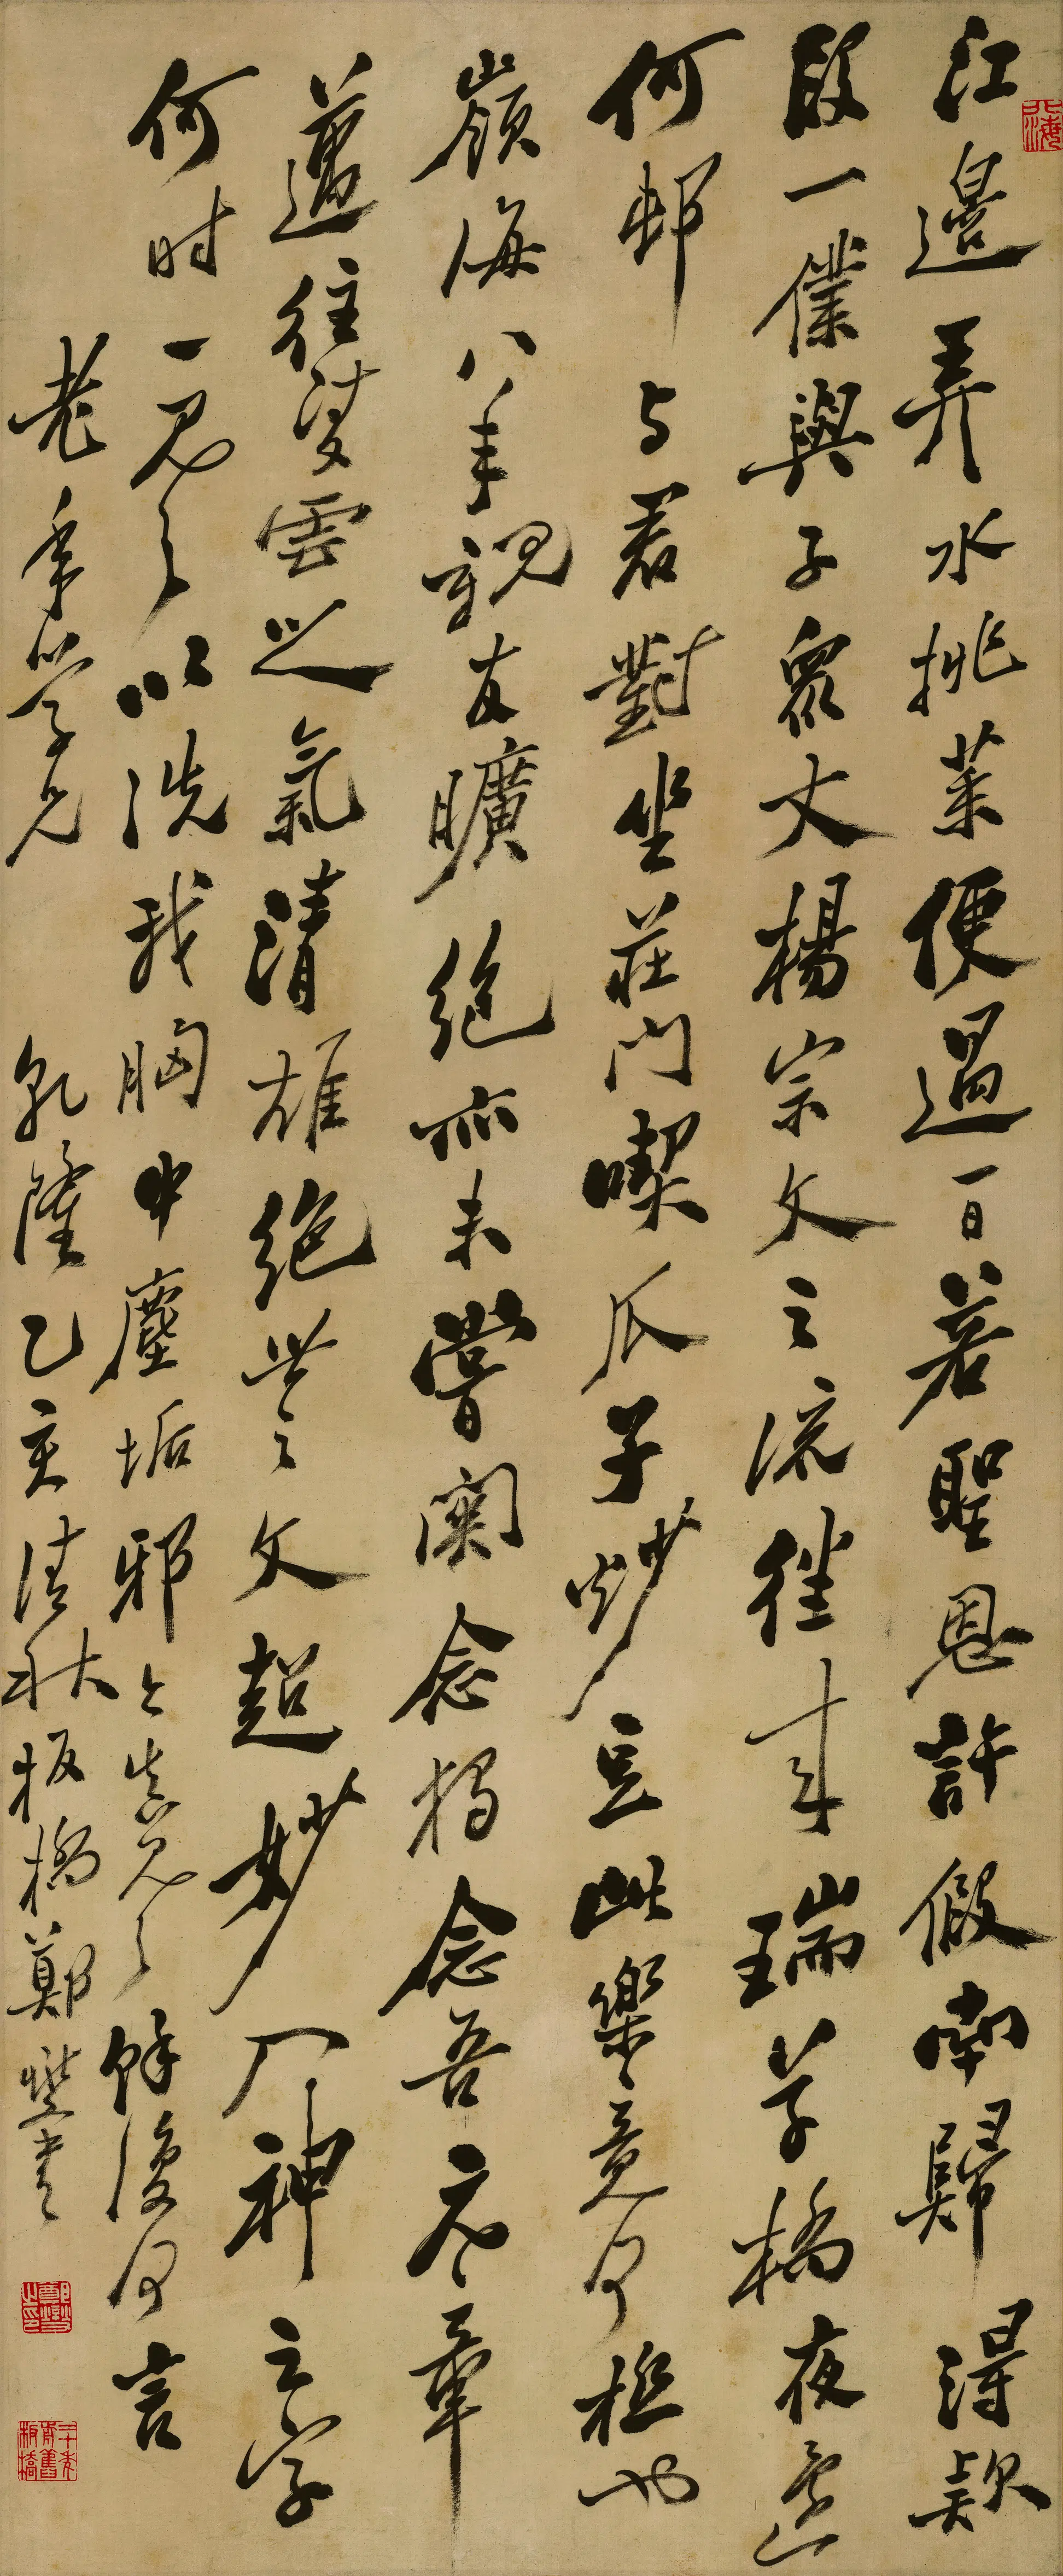 江邊弄水挑菜便過一日若聖恩許假南歸得款
段一僕與子眾丈楊宗文之流往來瑞草橋夜還
何邨与君對坐莊門喫瓜子炒豆此樂竟何極也
嶺海八年親友曠絕亦未嘗關念獨念吾元章
邁往凌雲之氣清雄絕世之文超妙入神之字
何时一見之以洗我胸中塵垢邪今真見之餘復何言
老年學兄 乾隆乙亥清秋板橋鄭燮書
鄭燮之印